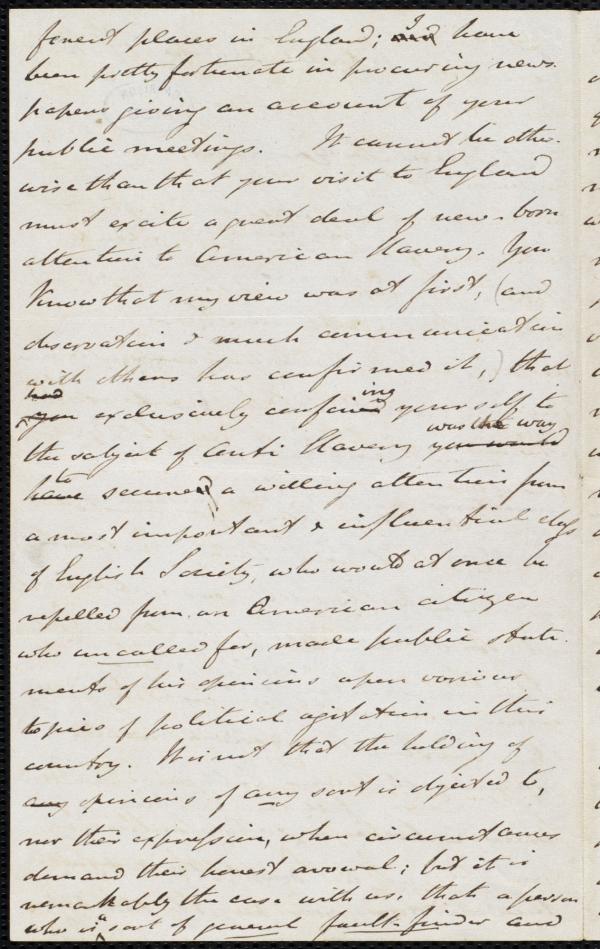 ferent places in England; I have
been pretty fortunate in procuring news-
papers giving an account of your
public meetings. It cannot be other-
wise than that your visit to England
must excite a great deal of new-born
attention to American Slavery. You
know that my view was at first, (and
observation & much communication
with others has confirmed it,) that
exclusively confining yourself to
the subject of Anti Slavery was the way
to secure a willing attention from
a most important & influential class
of English Society, who would at once be
repelled from an American citizen
who uncalled for, made public state-
ments of his opinions upon various
topics of political agitation in this
country. It is not that the holding of
opinions of any sort is objected to,
nor their expression, when circumstances
demand their honest avowal; but it is
remarkably the case with us, that a person
who is a sort of general fault-finder and